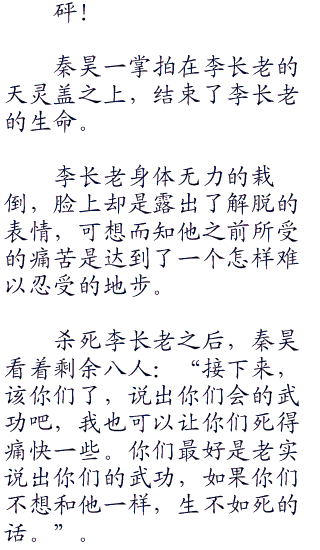 砰！
秦昊一掌拍在李长老的
天灵盖之上，结束了李长老
的生命。
李长老身体无力的栽
倒，脸上却是露出了解脱的
表情，可想而知他之前所受
的痛苦是达到了一个怎样难
以忍受的地步。
杀死李长老之后，秦昊
看着剩余八人：“接下来，
该你们了，说出你们会的武
功吧，我也可以让你们死得
痛快一些。你们最好是老实
说出你们的武功，如果你们
不想和他一样，生不如死的
话。”。